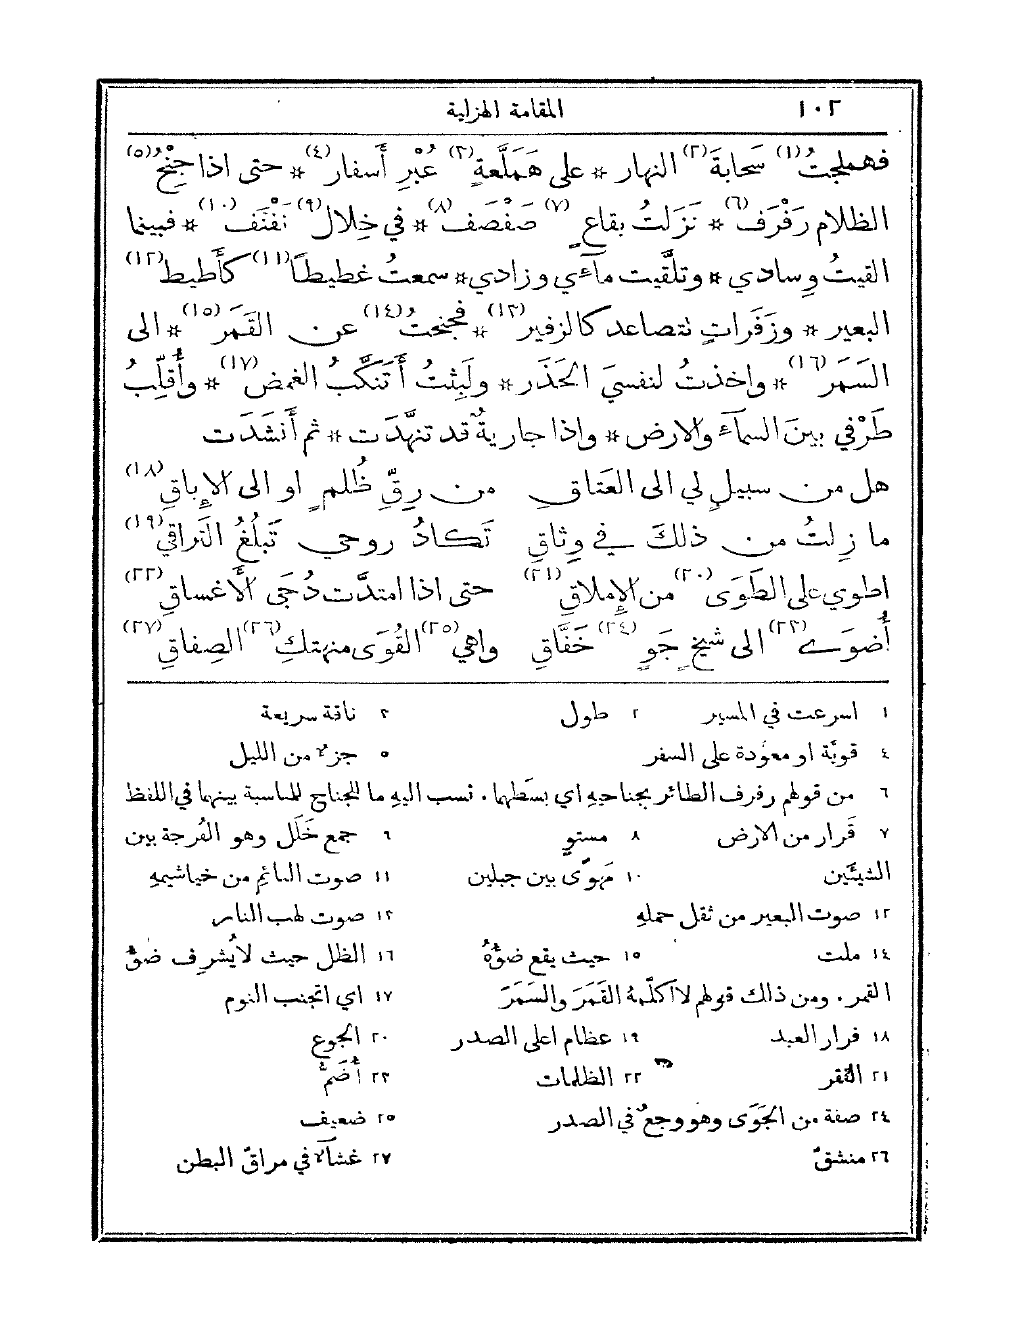 ١٠٢ المقامة الهزلية
فهملجتُ(١) سَحابةَ(٢) النهار * على هَمَلَّعةٍ(٣) عُبْرِ أَسفار(٤) * حتى اذا جِنْحُ(٥)
الظلام رَفْرَف(٦) * نَزَلتُ بقاعٍ(٧) صَفْصَف(٨) * في خِلال(٩) نَفْنَف(١٠) * فبينما
القيتُ وِسادي * وتلقَّيت مآءي وزادي * سمعتُ غطيطًا(١١) كأَطيط(١٢)
البعير * وزَفَراتٍ تتصاعد كالزفير(١٣) * فجنحتُ(١٤) عن القَمَر(١٥) * الى
السَمَر(١٦) * واخذتُ لنفسيَ الحَذَر * ولَبِثتُ أَتَنَكَّبُ الغمض(١٧) * وأُقلِّبُ
طَرْفي بينَ السمآءِ والارض * واذا جاريةٌ قد تنهَّدَت * ثم أَنشَدَت
هل من سبيلٍ لي الى العَتاقِ من رِقِّ ظُلمٍ او الى الإِباقِ(١٨)
ما زِلتُ من ذلكَ في وِثاقِ تَكادُ روحي تَبلُغُ التَراقي(١٩)
اطوي على الطَوَى(٢٠) من الإِملاقِ(٢١) حتى اذا امتدَّت دُجَى الأَغساقِ(٢٢)
أُضوَى(٢٣) الى شيخٍ جَوٍ(٢٤) خَفَّاقِ واهي(٢٥) القُوَى منهتكِ(٢٦) الصِفاقِ(٢٧)
١ اسرعت في المسير ٢ طول ٣ ناقة سريعة
٤ قويَّة او معوَّدة على السفر ٥ جزءٌ من الليل
٦ من قولهم رفرف الطائر بجناحيهِ اي بسَطهما. نسب اليهِ ما للجناح للمناسبة بينهما في اللفظ
٧ قَرار من الارض ٨ مستوٍ ٩ جمع خَلَل وهو الفُرجة بين
الشيئَين ١٠ مَهوًى بين جبلين ١١ صوت النائمِ من خياشيمهِ
١٢ صوت البعير من ثقل حملهِ ١٣ صوت لهب النار
١٤ ملت ١٥ حيث يقع ضوُّهُ ١٦ الظل حيث لا يُشرِف ضوُّ
القمر. ومن ذلك قولهم لا اكلّمهُ القَمَرَ والسَمَرَ ١٧ اي اتجنب النوم
١٨ فرار العبد ١٩ عظام اعلى الصدر ٢٠ الجوع
٢١ الفقر ٢٢ الظلمات ٢٣ أُضَمُّ
٢٤ صفة من الجَوَى وهو وجعٌ في الصدر ٢٥ ضعيف
٢٦ منشقّ ٢٧ غشآءٌ في مراقّ البطن